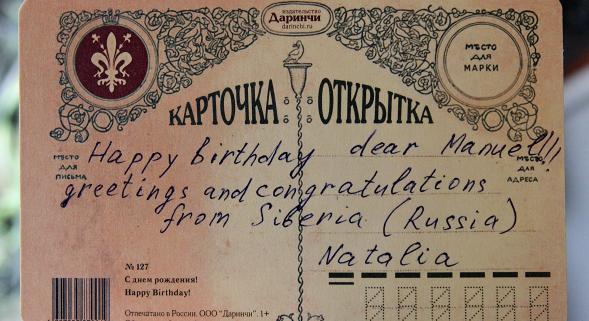 издательство
Даринчи
darinchi.ru
МѢСТО
ДЛЯ
МАРКИ
КАРТОЧКА ОТКРЫТКА
Happy Birthday dear Manuel!!!
МѢСТО
ДЛЯ
ПИСЬМА
МѢСТО
ДЛЯ
АДРЕСА
greetings and congratulations
from Siberia (Russia)
Natalia
№ 127
С днем рождения!
Happy Birthday!
Отпечатано в России. ООО "Даринчи". 1+